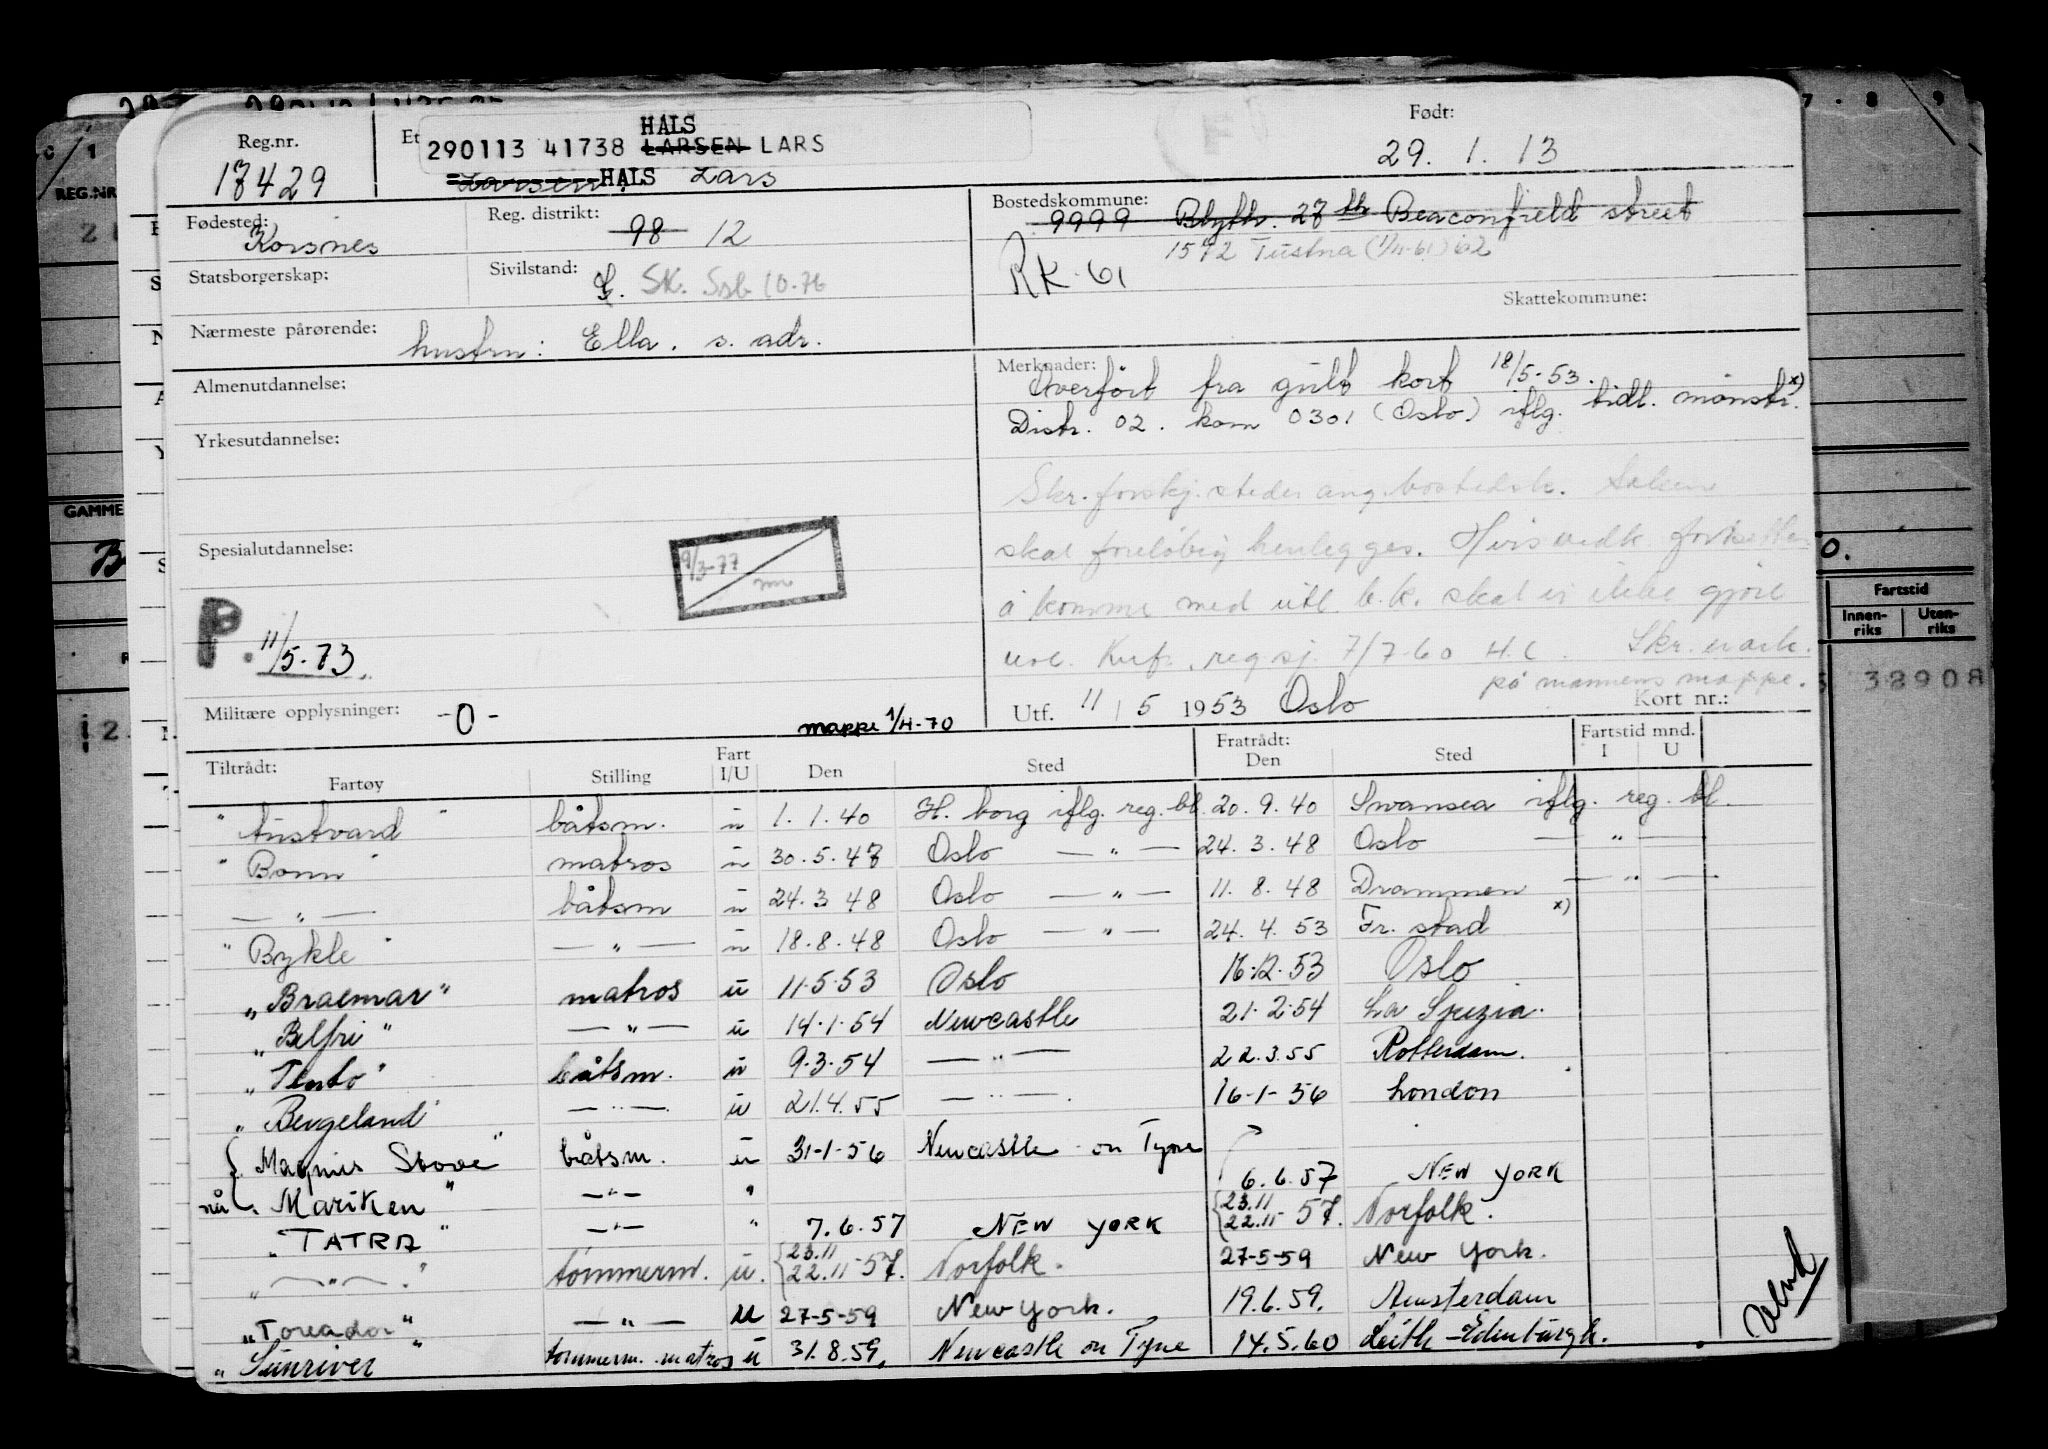 Reg.nr.
17429
Et
HALS
290113 41738 LARSEN LARS
Larsen HALS Lars
Født:
29. 1. 13
Fødested:
Korsnes
Reg. distrikt:
98 12
Bostedskommune:
9999 Blyth. 27 Beaconfield street
1572 Tustna (1/4-61) 62
RK-61
Statsborgerskap:
Sivilstand:
G. SK. Ssb 10.76
Skattekommune:
Nærmeste pårørende:
hustru: Ella. s. adr.
Almenutdannelse:
Merknader:
Overført fra gult kort 18/5-53.
Distr. 02. kom 0301 (Oslo) iflg. tidl. mønstr. x)
Yrkesutdannelse:
Skr. forskj. steder ang. bostedsk. Saken
skal foreløbig henlegges. Hvis vedk. fortsetter
å komme med utl. b.k. skal vi ikke gjøre
noe. reg. sj. 7/7-60 H.C. Skr. er ark.
på mannens mappe.
Spesialutdannelse:
9/3-77
P. 11/5-73.
Militære opplysninger: -0-
mappe 1/4-70
Utf. 11/5 1953 Oslo
Kort nr.:
Tiltrådt:
Fartøy
Stilling
Fart
I/U
Den
Sted
Fratrådt:
Den
Sted
Fartstid mnd.
I U
"Austvard" båtsm. u 1.1.40 H.borg iflg. reg. bl. 20.9.40 Swansea iflg. reg. bl.
"Bonn" matros u 30.5.47 Oslo — " — 24.3.48 Oslo — " —
— " — båtsm u 24.3 48 Oslo — " — 11.8.48 Drammen — " —
"Bykle" — " — u 18.8.48 Oslo — " — 24.4.53 Fr.stad x)
"Braemar" matros u 11.5.53 Oslo 16.12.53 Oslo
"Belfri" — " — u 14.1.54 Newcastle 21.2.54 La Spezia.
"Tento" båtsm. u 9.3.54 — " — 22.3.55 Rotterdam.
"Bengeland" — " — u 21.4.55 — " — 16-1-56 London
{"Magnus Stove" båtsm. u 31-1-56 Newcastle on Tyne
nå "Mariken" — " — " 6.6.57 NEW YORK
"TATRA" — " — " 7.6.57 NEW YORK {23.11 22.11-57. Norfolk.
" — " — " tømmerm. u. {23.11 22.11-57. Norfolk. 27-5-59 New York.
"Toreador" — " — u 27-5-59 New York. 19.6.59. Amsterdam
"Sunriver" tømmerm. matros u 31.8.59. Newcastle on Tyne 14.5.60 Leith-Edinburgh.
REG.NR
GAMME
Fartstid
Innen-
riks
Uten-
riks
38908
7 8 9